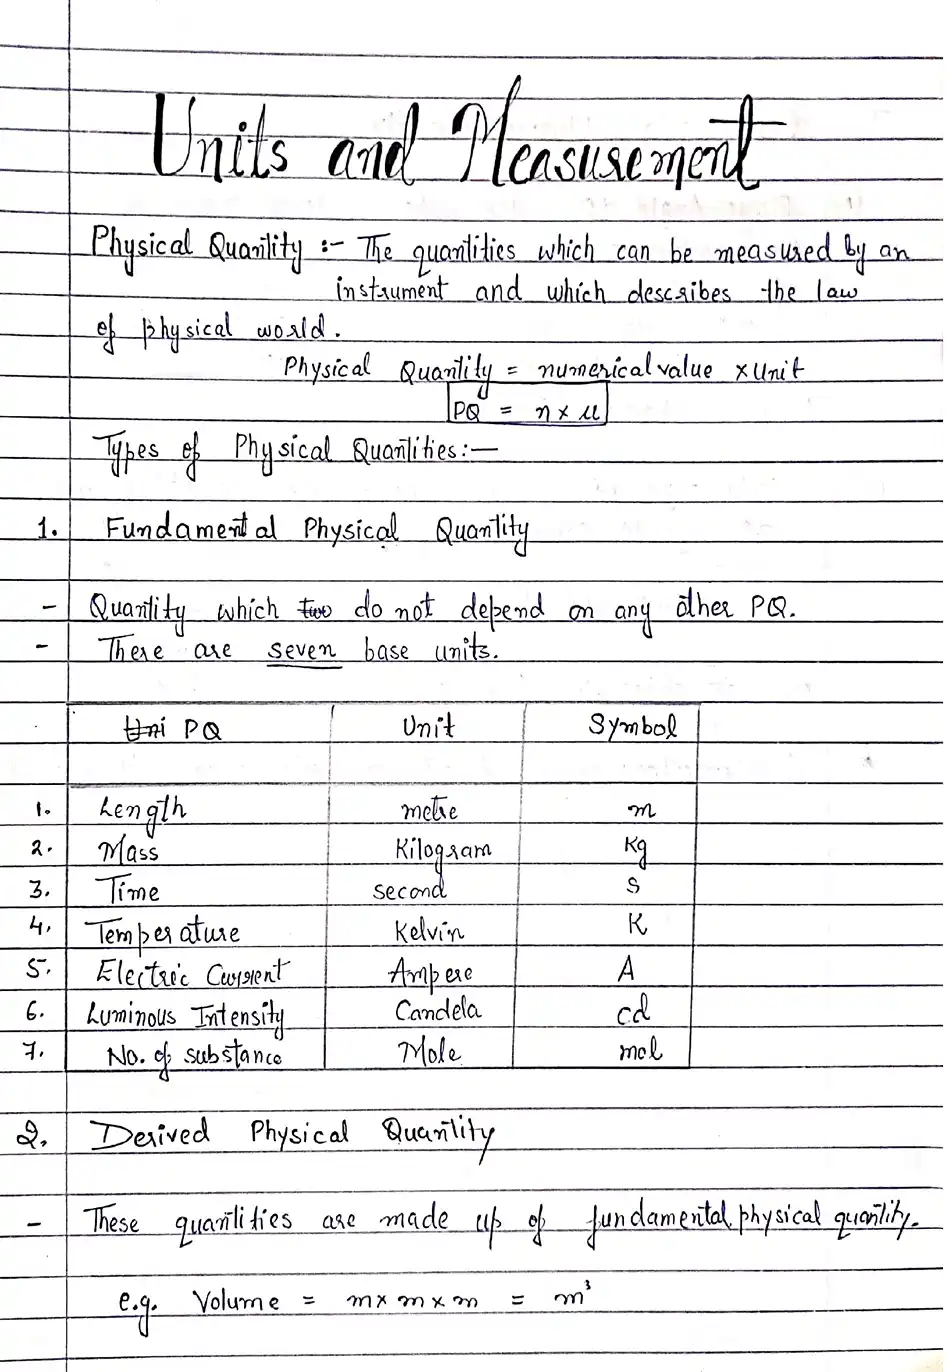 Units and Measurement
Physical Quantity :- The quantities which can be measured by an
instrument and which describes the law
of physical world.
Physical Quantity = numerical value x Unit
PQ = n x u
Types of Physical Quantities:-
1. Fundamental Physical Quantity
- Quantity which two do not depend on any other PQ.
- There are seven base units.
Uni PQ Unit Symbol
1. Length metre m
2. Mass Kilogram Kg
3. Time second S
4. Temperature Kelvin K
5. Electric Current Ampere A
6. Luminous Intensity Candela cd
7. No. of substance Mole mol
2. Derived Physical Quantity
- These quantities are made up of fundamental physical quantity.
e.g. Volume = m x m x m = m³